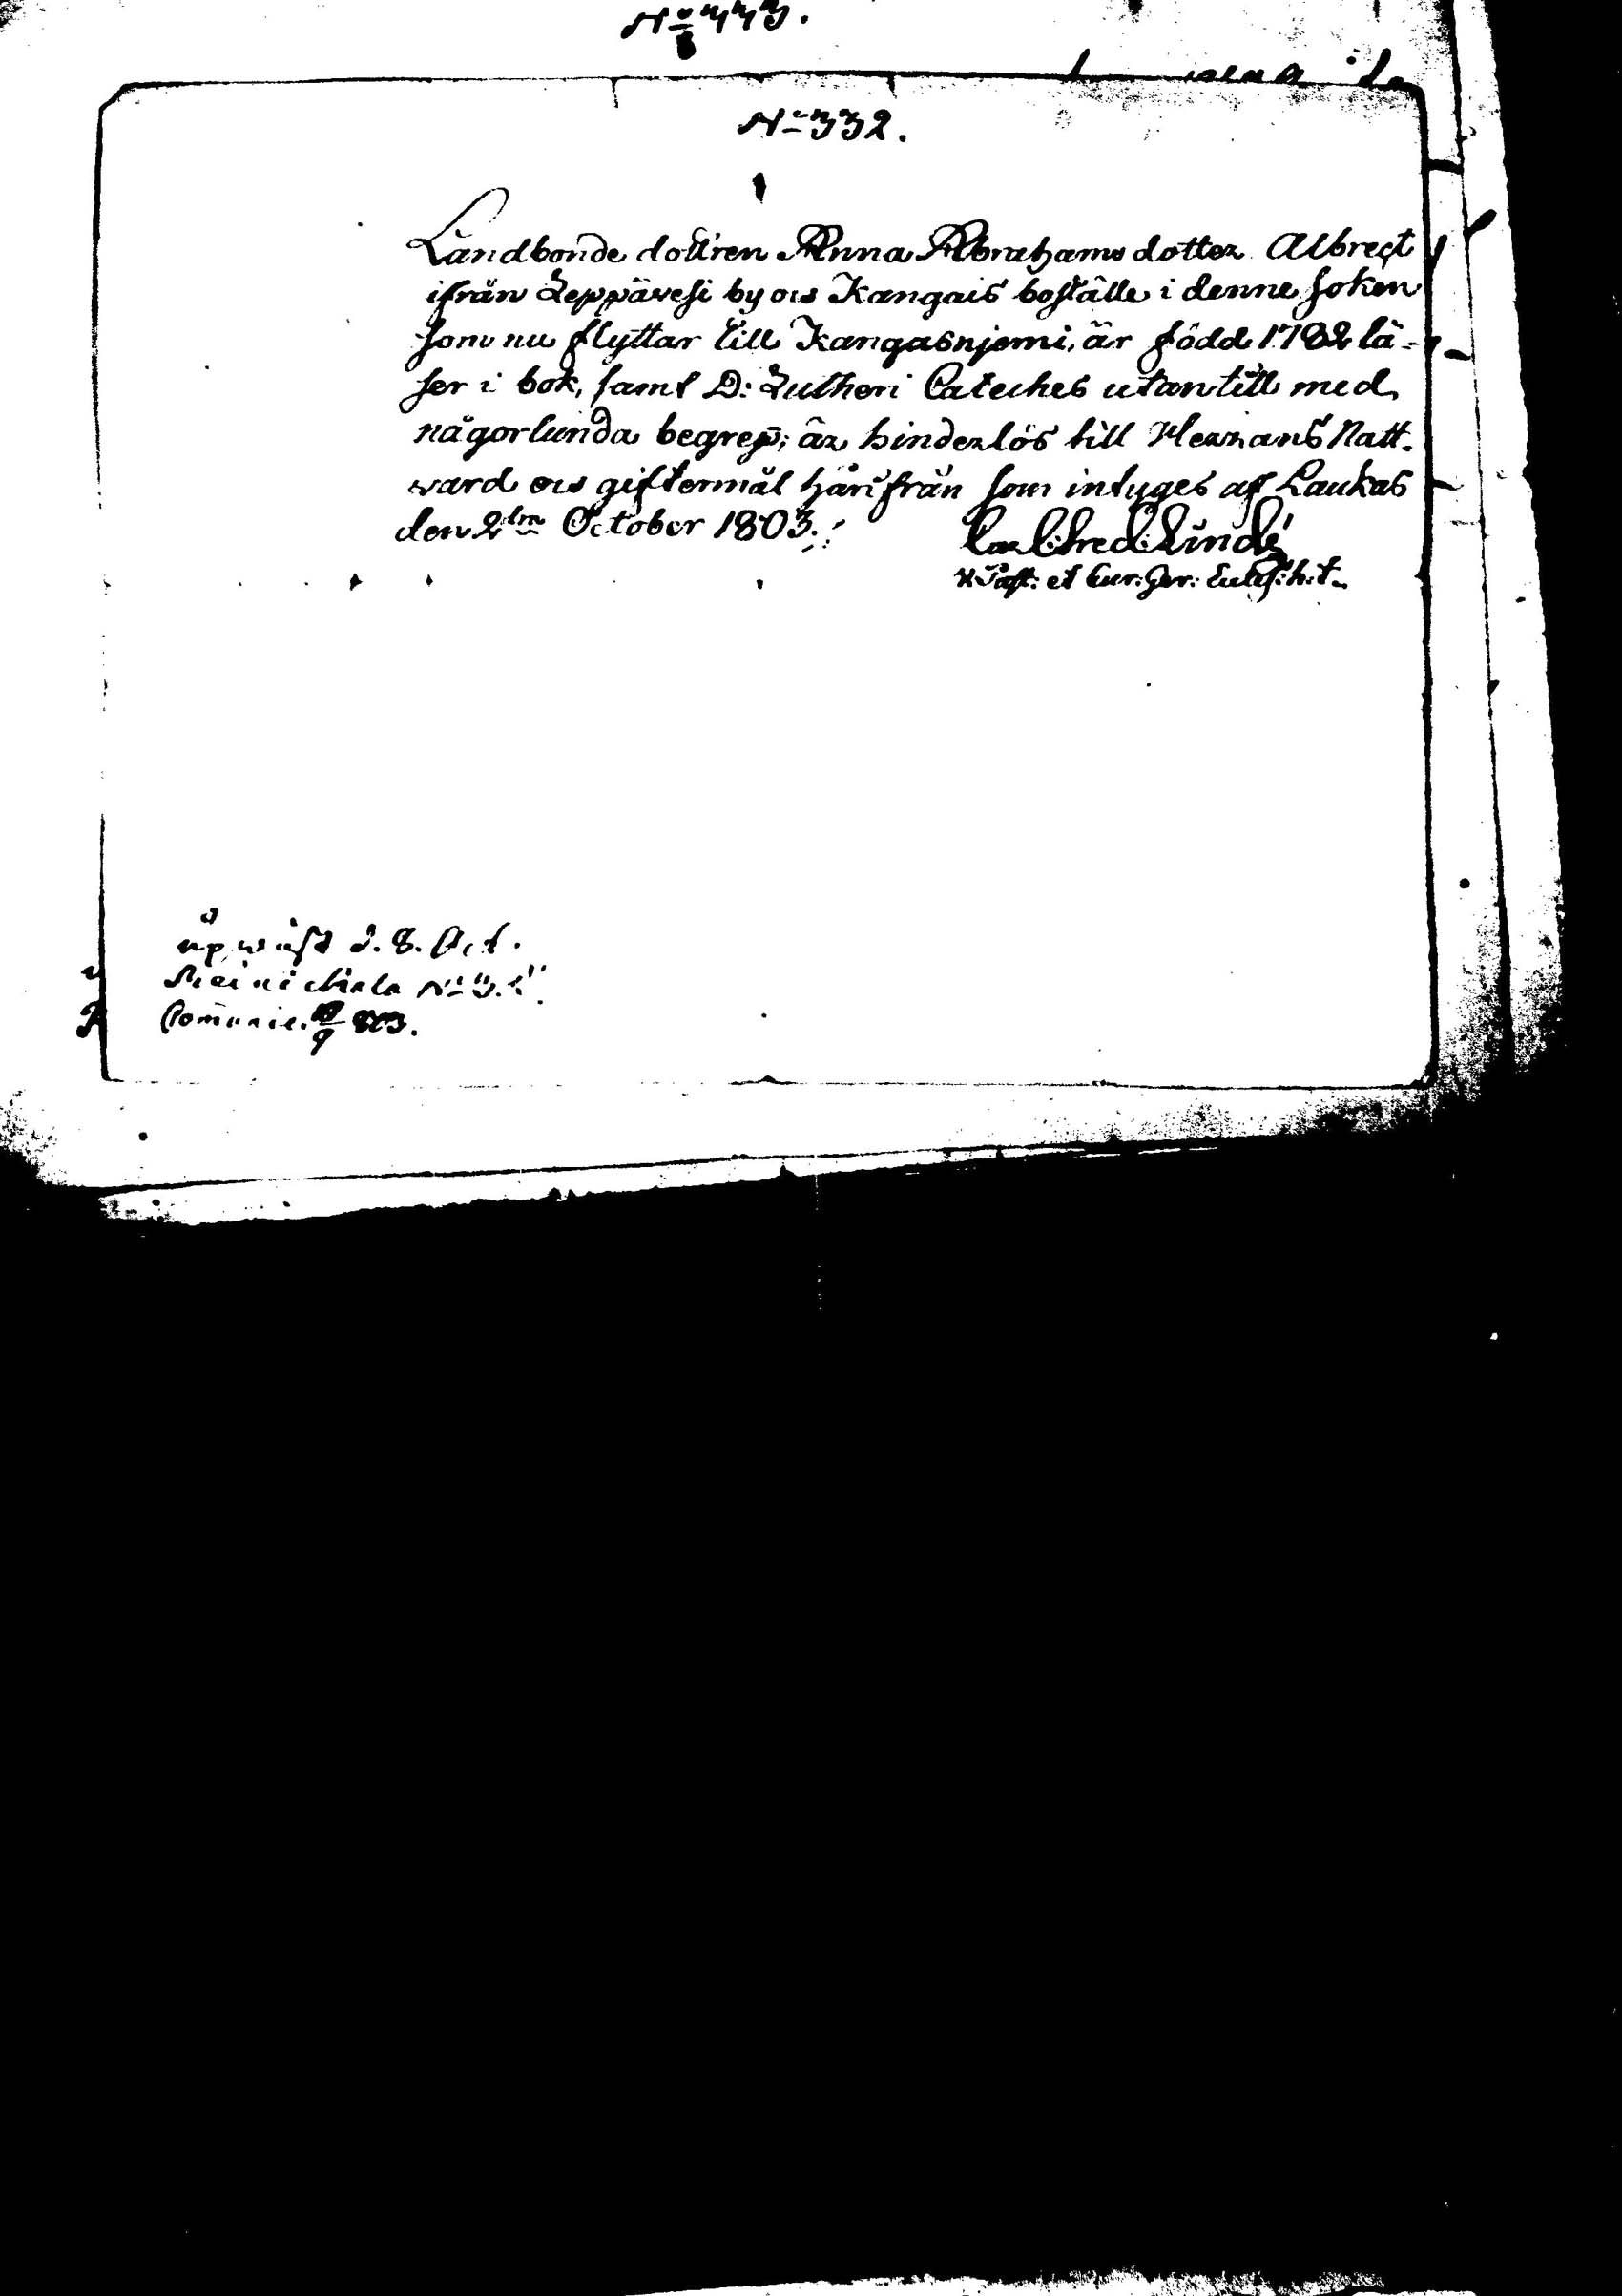 No 333.
No 332.
Landbonde dottren Anna Abrahams dotter Albrect
ifrån Leppävesi by ow Kangais boställe i denne soken
som nu flyttar till Kangasnjemi, är född 1782 lä-
ser i bok, samt D: Lutheri Cateches utantill med
någorlunda begrep; är hinderlös till Herrans Natt-
ward ow giftermål härifrån som intyges af Laukas
den 2dra October 1803.
Carl: Fred: Lindé
et Cur: Ger:
upwist d. 8. Oct.
No 3.
Com̄unic. 803.